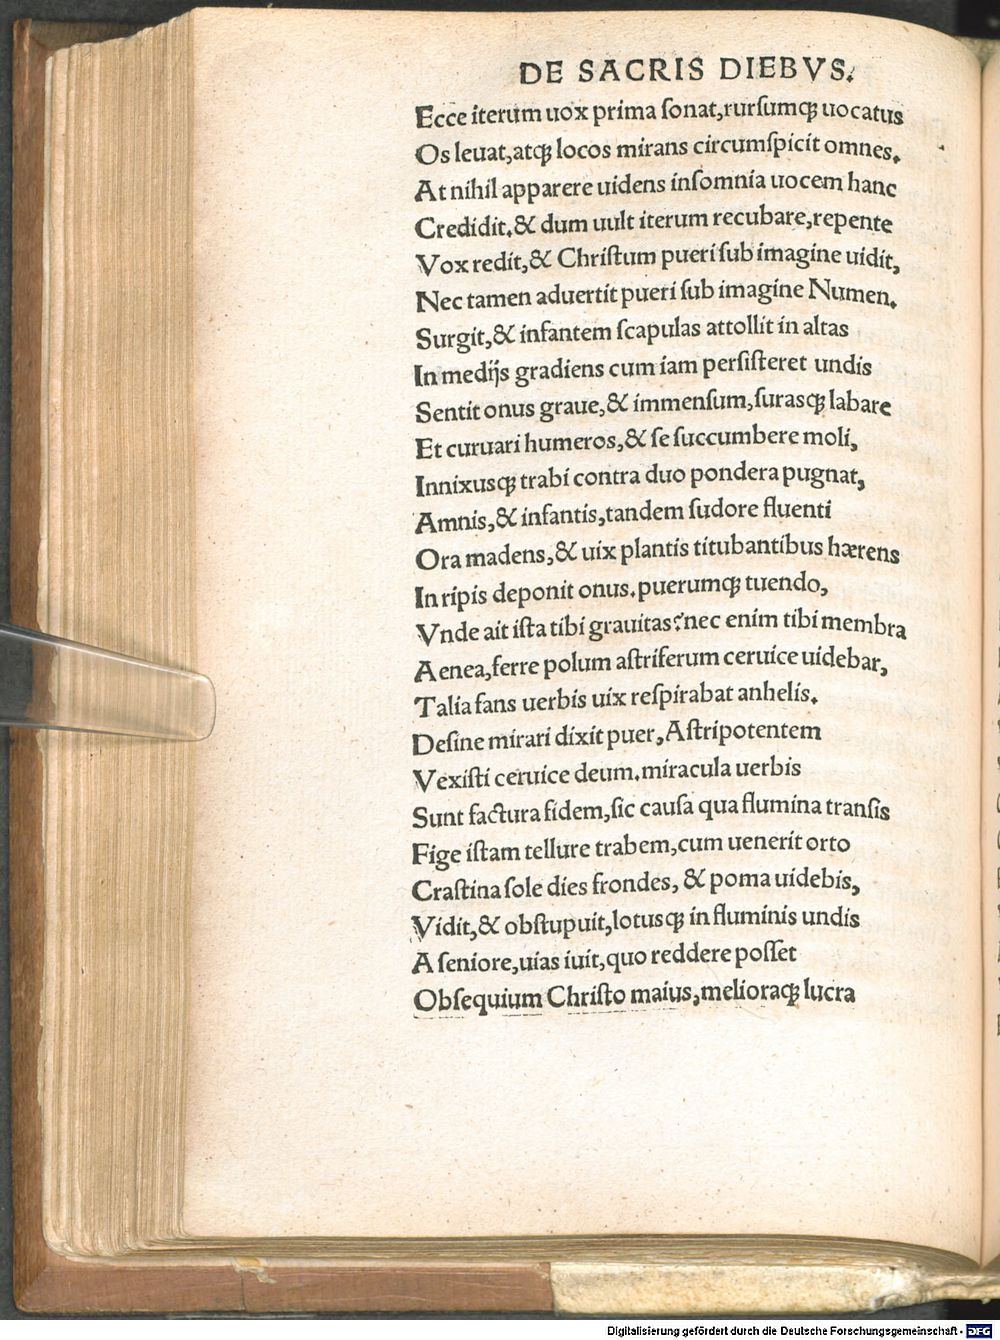 DE SACRIS DIEBVS.
Ecce iterum uox prima ſonat,rurſumqꝫ uocatus
Os leuat,atqꝫ locos mirans circumſpicit omnes.
At nihil apparere uidens inſomnia uocem hanc
Credidit.& dum uult iterum recubare,repente
Vox redit,& Chriſtum pueri ſub imagine uidit,
Nec tamen aduertit pueri ſub imagine Numen.
Surgit,& infantem ſcapulas attollit in altas
In medijs gradiens cum iam perſiſteret undis
Sentit onus graue,& immenſum,ſurasqꝫ labare
Et curuari humeros,& ſe ſuccumbere moli,
Innixusqꝫ trabi contra duo pondera pugnat,
Amnis,& infantis,tandem ſudore fluenti
Ora madens,& uix plantis titubantibus hærens
In ripis deponit onus.puerumqꝫ tuendo,
Vnde ait iſta tibi grauitas?nec enim tibi membra
Aenea,ferre polum aſtriferum ceruice uidebar,
Talia fans uerbis uix reſpirabat anhelis.
Deſine mirari dixit puer,Aſtripotentem
Vexiſti ceruice deum.miracula uerbis
Sunt factura fidem,ſic cauſa qua flumina tranſis
Fige iſtam tellure trabem,cum uenerit orto
Craſtina ſole dies frondes, & poma uidebis,
Vidit,& obſtupuit,lotusqꝫ in fluminis undis
A ſeniore,uias iuit,quo reddere poſſet
Obſequium Chriſto maius,melioraqꝫ lucra
Digitalisierung gefördert durch die Deutsche Forschungsgemeinschaft - DFG